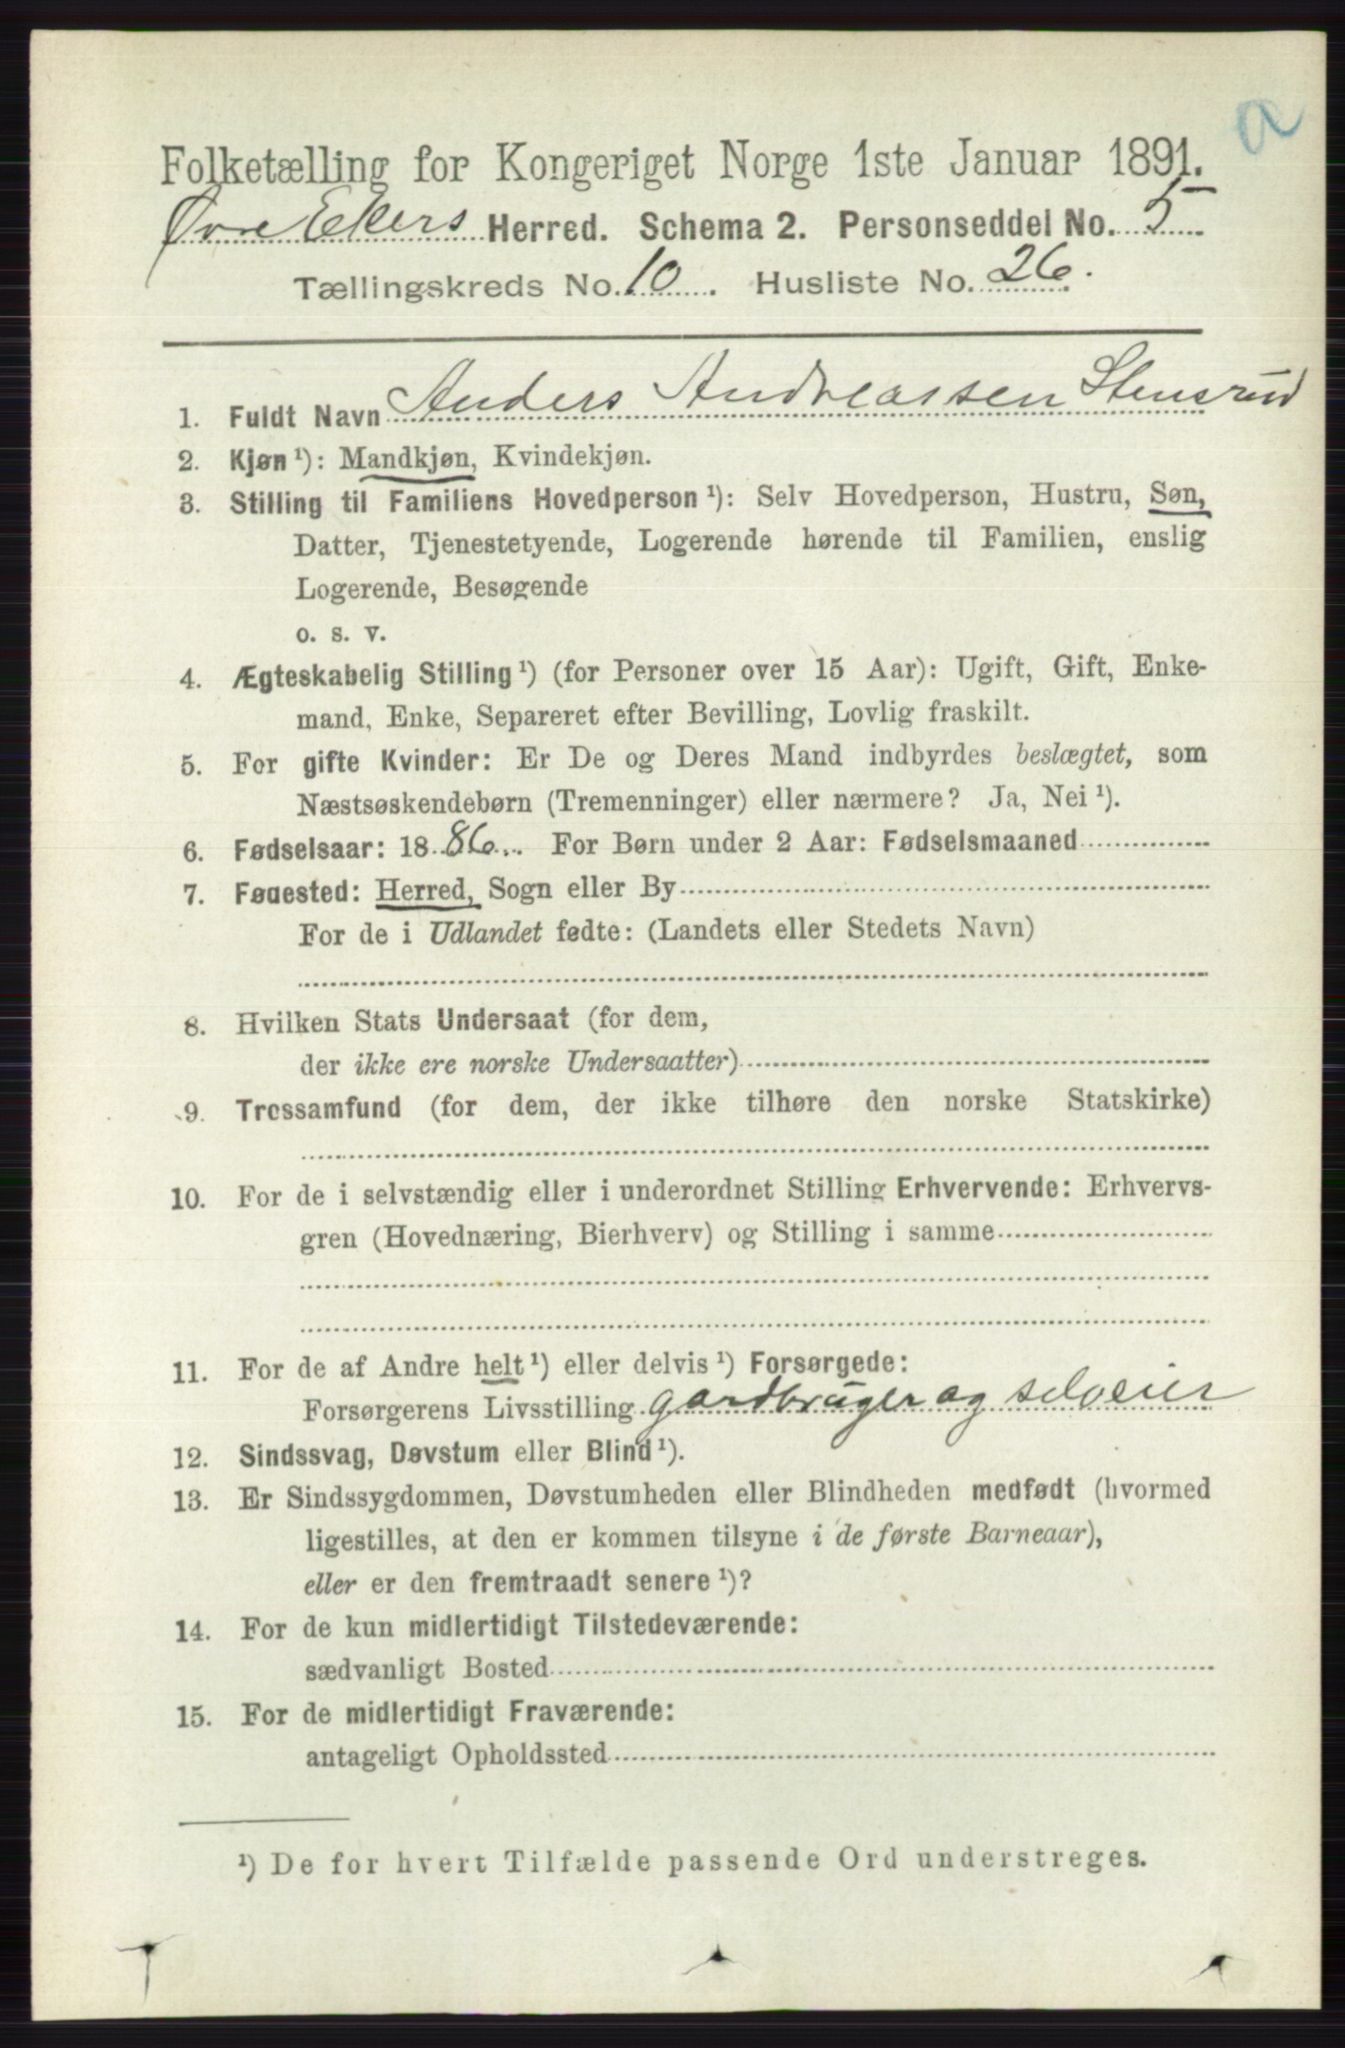 a
Folketælling for Kongeriget Norge 1ste Januar 1891.
Øvre Ekers Herred. Schema 2. Personseddel No. 5
Tællingskreds No. 10. Husliste No. 26.
1. Fuldt Navn Anders Andreassen Stensrud
2. Kjøn ¹): Mandkjøn, Kvindekjøn.
3. Stilling til Familiens Hovedperson ¹): Selv Hovedperson, Hustru, Søn,
Datter, Tjenestetyende, Logerende hørende til Familien, enslig
Logerende, Besøgende
o. s. v.
4. Ægteskabelig Stilling ¹) (for Personer over 15 Aar): Ugift, Gift, Enke-
mand, Enke, Separeret efter Bevilling, Lovlig fraskilt.
5. For gifte Kvinder: Er De og Deres Mand indbyrdes beslægtet, som
Næstsøskendebørn (Tremenninger) eller nærmere? Ja, Nei ¹).
6. Fødselsaar: 1886. For Børn under 2 Aar: Fødselsmaaned
7. Føuested: Herred, Sogn eller By
For de i Udlandet fødte: (Landets eller Stedets Navn)
8. Hvilken Stats Undersaat (for dem,
der ikke ere norske Undersaatter)
9. Trossamfund (for dem, der ikke tilhøre den norske Statskirke)
10. For de i selvstændig eller i underordnet Stilling Erhvervende: Erhvervs-
gren (Hovednæring, Bierhverv) og Stilling i samme
11. For de af Andre helt ¹) eller delvis ¹) Forsørgede:
Forsørgerens Livsstilling gardbruger og selveier
12. Sindssvag, Døvstum eller Blind ¹).
13. Er Sindssygdommen, Døvstumheden eller Blindheden medfødt (hvormed
ligestilles, at den er kommen tilsyne i de første Barneaar),
eller er den fremtraadt senere ¹)?
14. For de kun midlertidigt Tilstedeværende:
sædvanligt Bosted
15. For de midlertidigt Fraværende:
antageligt Opholdssted
¹) De for hvert Tilfælde passende Ord understreges.